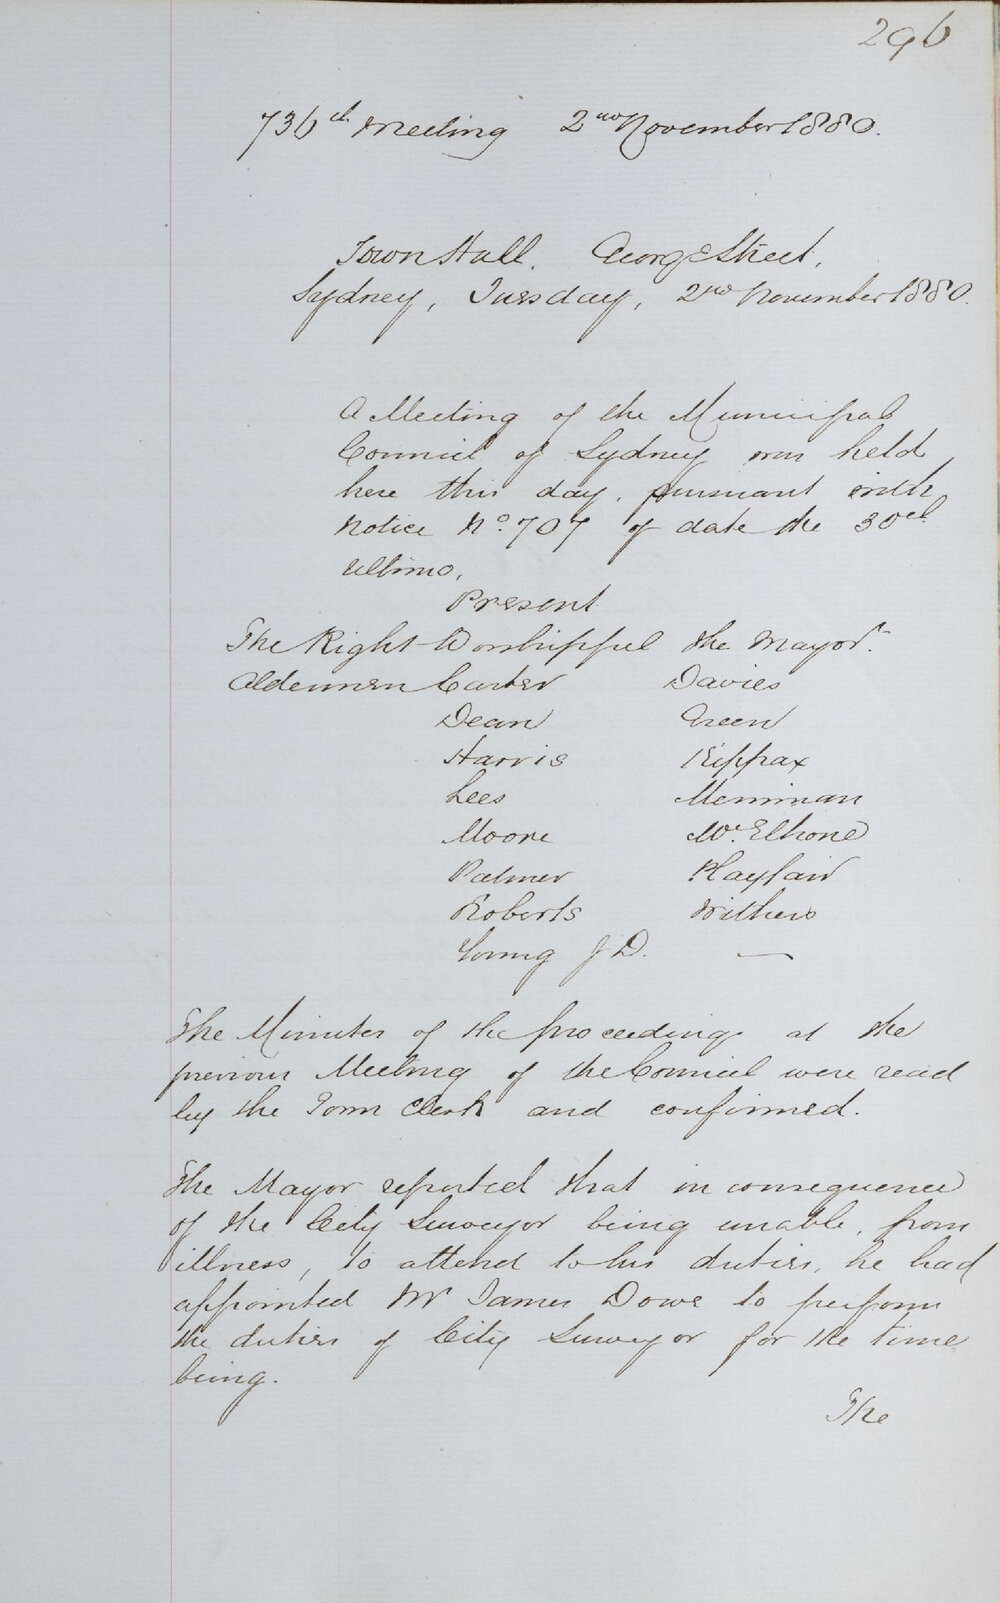 296
736th Meeting 2nd November 1880.
Town Hall. George Street,
Sydney, Tuesday, 2nd November 1880.
A Meeting of the Municipal
Council of Sydney was held
here this day, pursuant with
Notice No. 707 of date the 30th
Ultimo,
Present
The Right Worshipful the Mayor.
Aldermen Carter Davies
Dean Green
Harris Kippax
Lees Merriman
Moore McElhone
Palmer Playfair
Roberts Withers
Young J D. —
The Minutes of the proceedings at the
previous Meeting of the Council were read
by the Town Clerk and confirmed.
The Mayor reported that in consequence
of the City Surveyor being unable, from
illness, to attend to his duties, he had
appointed Mr James Dowe to perform
the duties of City Surveyor for the time
being.
The